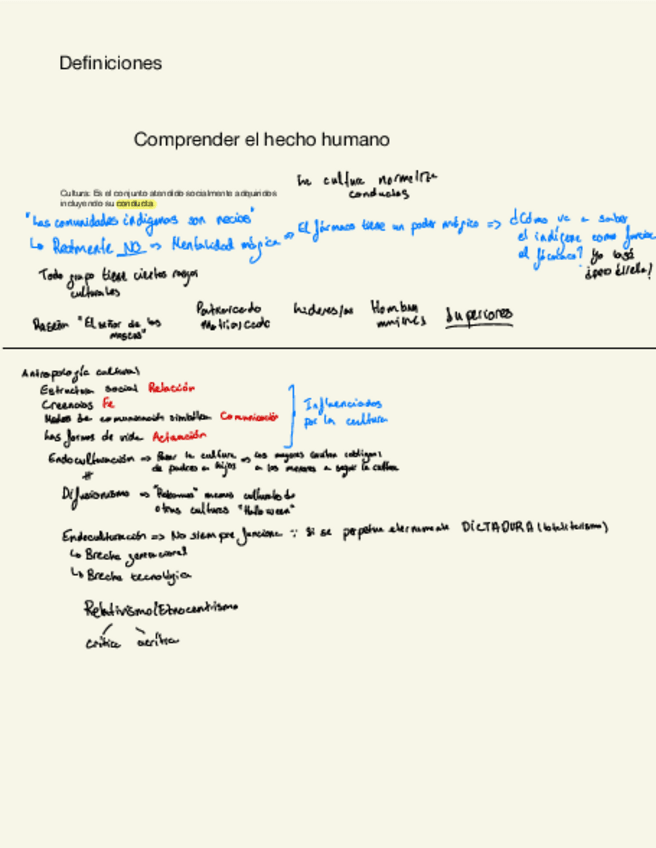 Definiciones
Comprender el hecho humano
La cultura normaliza
conductas
Cultura: Es el conjunto atendido socialmente adquiridos
incluyendo su conducta
"Las comunidades indígenas son necias"
↳ Realmente NO => Mentalidad mágica => El fármaco tiene un poder mágico => ¿Cómo va a saber
el indígena como funciona
el fármaco? Yo
Todo grupo tiene ciertos rasgos
culturales
"El señor de las
moscas"
Patriarcado
Matriarcado
Líderes/as
Hombres
Superiores
Antropología cultural
Estructura social Relación
Creencias Fe
Modos de comunicación simbólica Comunicación
Las formas de vida Actuación
Influenciados
por la cultura
Endoculturación => Pasar la cultura => Los mayores
de padres a hijos a los menores a seguir la cultura
≠
Difusionismo => "Robamos" culturales de
otras culturas "Halloween"
Endoculturación => No siempre funciona ∵ Si se perpetua eternamente DICTADURA (totalitarismo)
↳ Brecha generacional
↳ Brecha tecnológica
Relativismo/Etnocentrismo
crítica acrítica